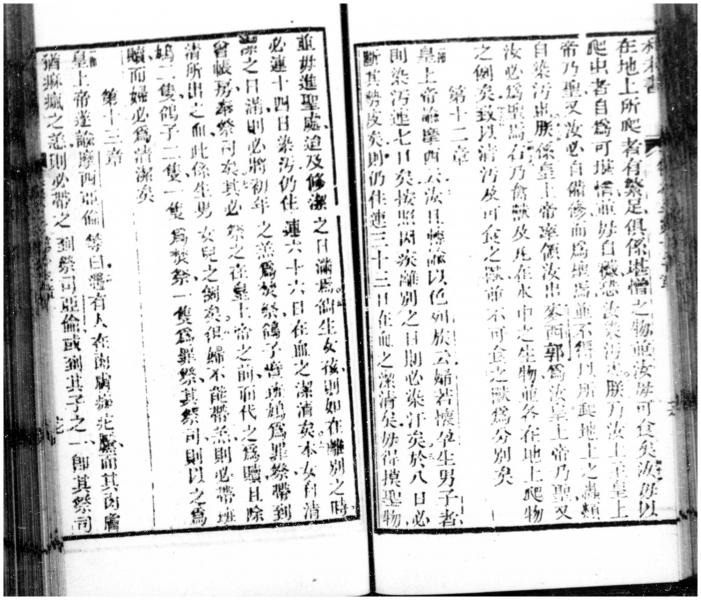 利未書
在地上所爬者有祭足俱係堪憎之物並汝毋可食矣汝毋以
爬虫者自為可堪憎並毋自穢恐汝染污朕乃汝上主皇上
帝乃聖又汝必自備修而為聖焉並不得以所爬地上之蟲類
自染污焉朕係皇上帝率領汝出
郭為汝皇上帝乃聖又
汝必為聖焉右乃禽獸及凡在水中之生物並各在地上爬物
之例矣致以清污及可食之獸並不可食之獸為分別矣
第十二章
皇上帝諭摩西云汝且轉諭以色列族云婦若懷孕生男子者
則染污連七日矣按照因疾離別之日期必染汙矣於八日必
斷其勢皮矣則仍住連三十三日在血之潔清矣毋得摸聖物
並毋進聖處迨及修潔之日滿焉倘生女孩則如在離別之時
必連十四日染污仍住連六十六日在血之潔清矣本女自清
潔之日滿則必將初年之羔為焚祭鴿子
為罪祭帶到
會帳房奉祭司矣其必祭之在皇上帝之前而代之為贖且除
清所出之血此係生男女兒之例矣倘婦不能帶羔則必帶班
鳩二隻鴿子二隻一隻為焚祭一隻為罪祭其祭司則以之為
贖而婦必為清潔矣
第十三章
皇上帝遂諭摩西亞倫等曰若有人在肉膚
其肉膚
猶痲瘋之恙則必帶之到祭司亞倫或到其子之一即其祭司